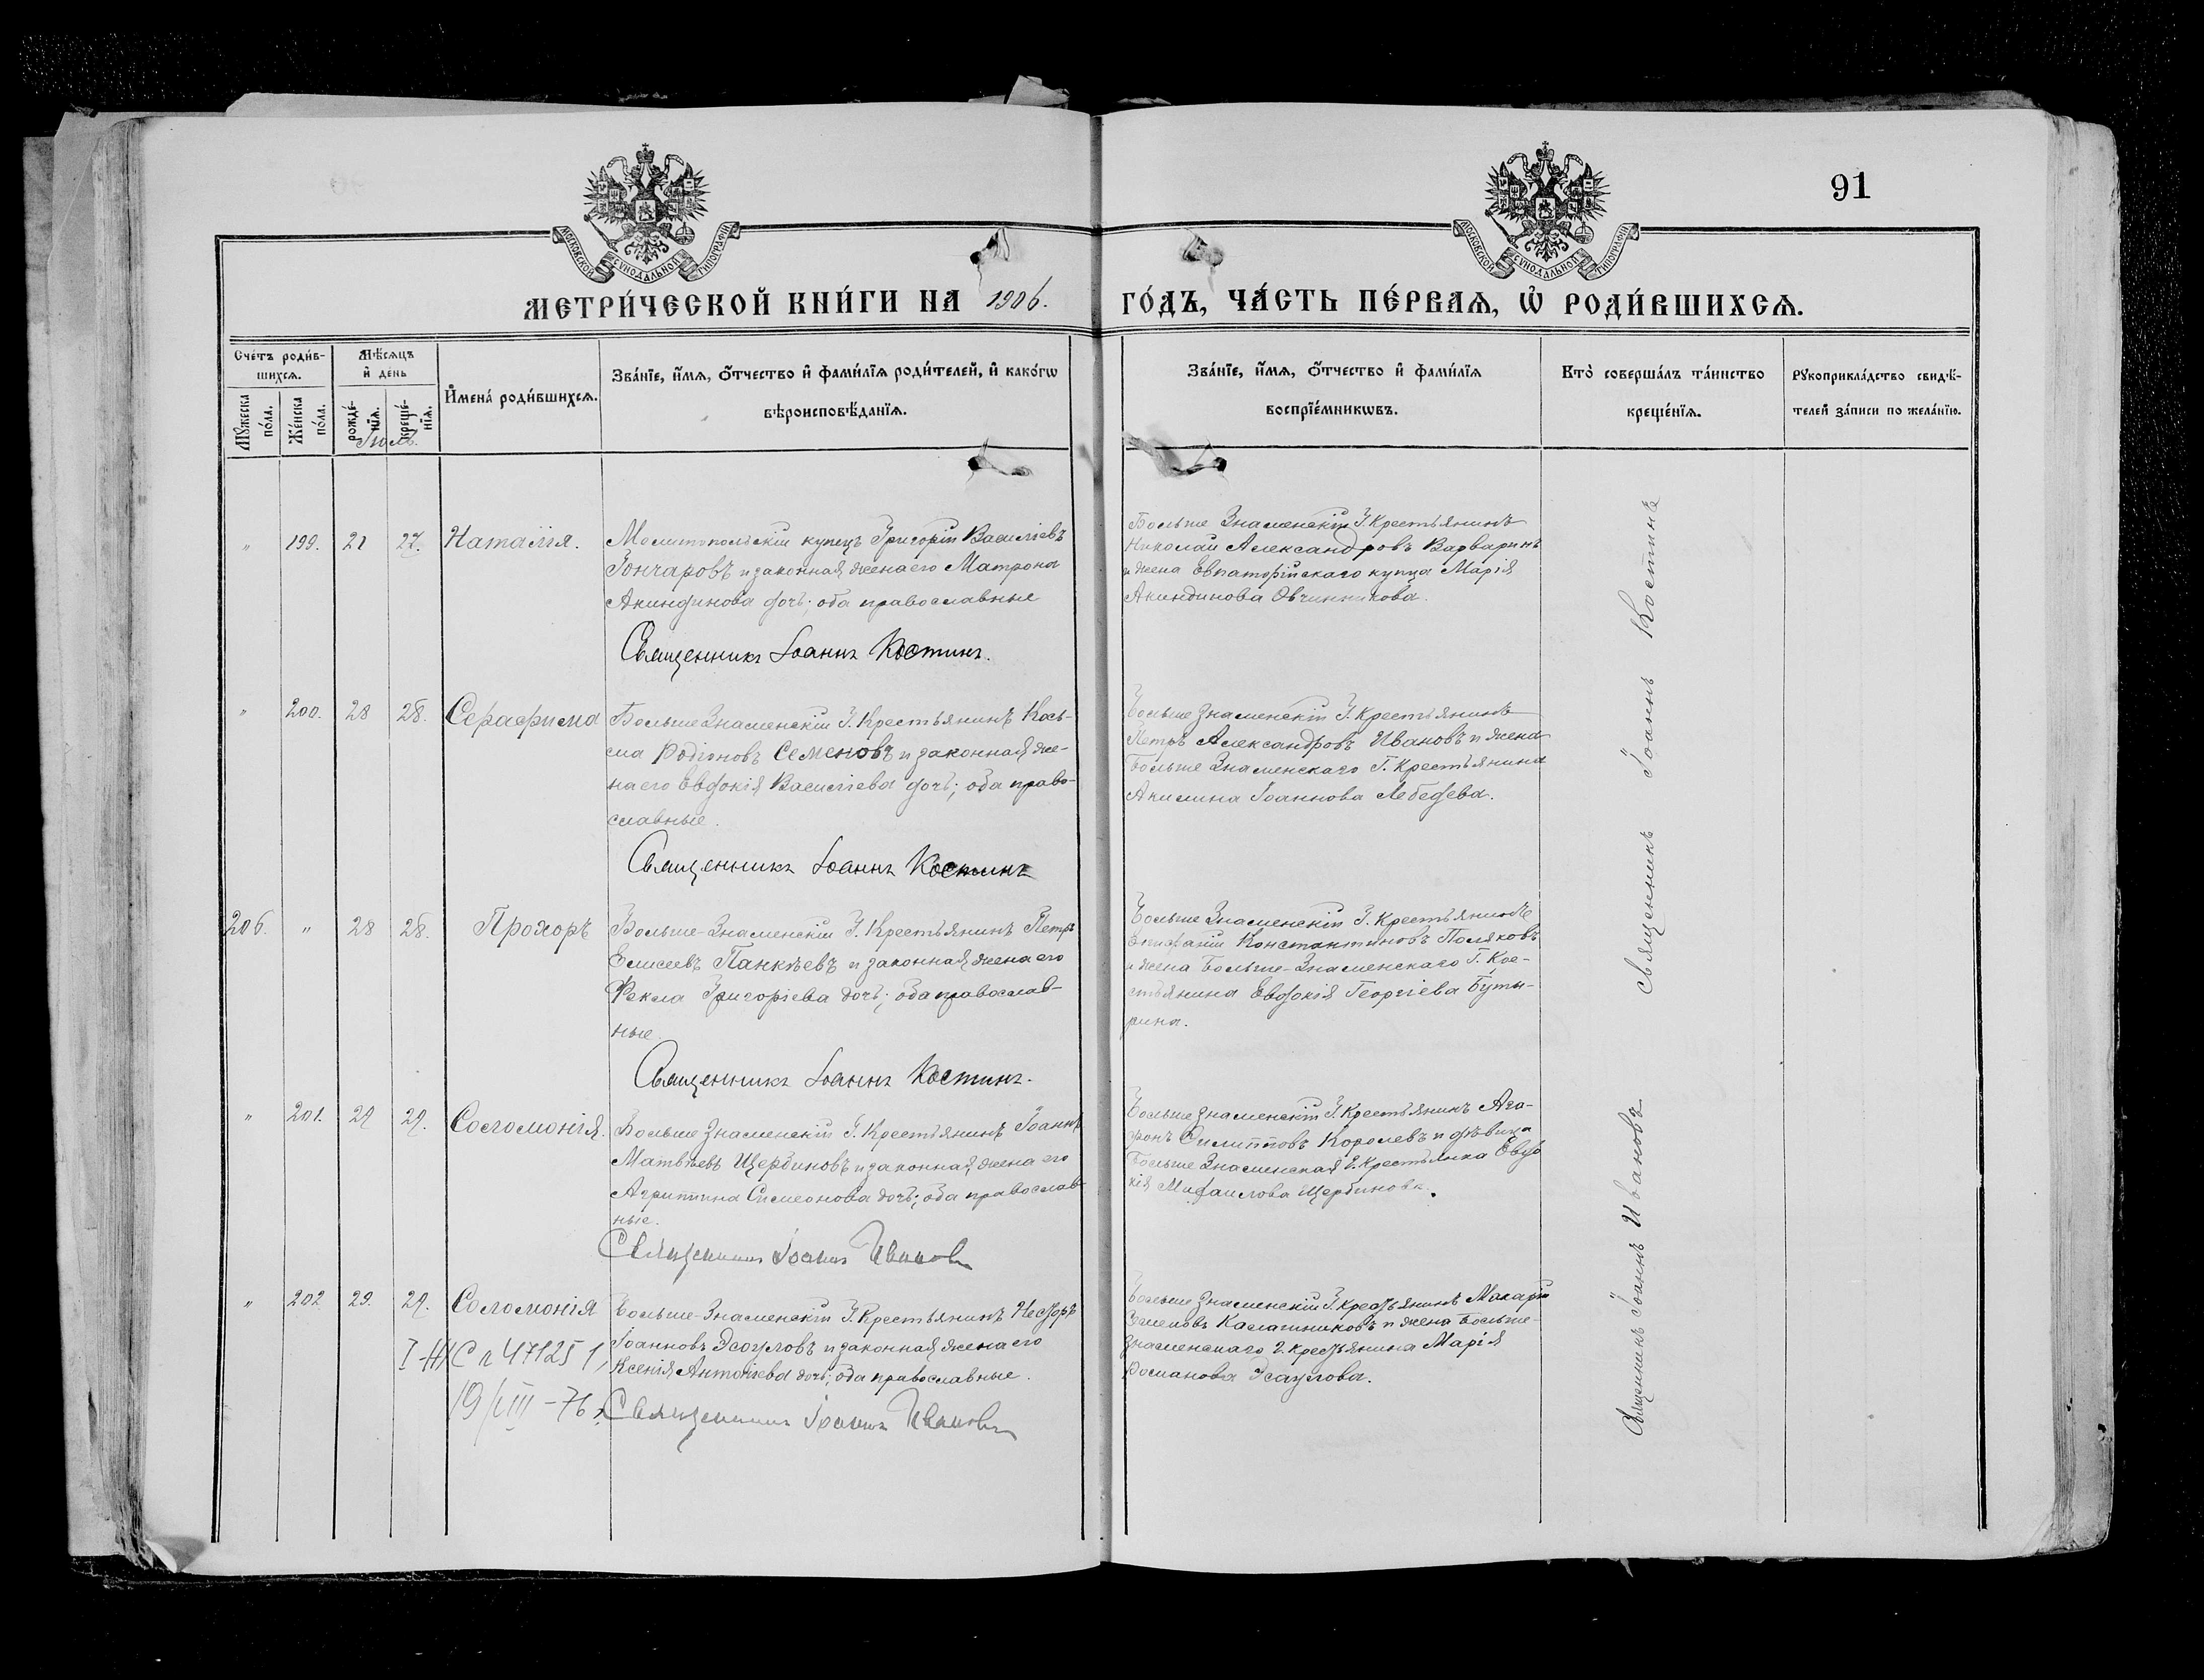 91
МОСКОВСКОЙ СѴНОДАЛЬНОЙ ТИПОГРАФІИ
МОСКОВСКОЙ СѴНОДАЛЬНОЙ ТИПОГРАФІИ
МЕТРИ́ЧЕСКОЙ КНИ́ГИ НА 1906.
ГО́ДЪ, ЧА́СТЬ ПЕ́РВАЯ, Ѡ РОДИ́ВШИХСЯ.
Сче́тъ роди́в-
шихся.
Мѣ́сяцъ
и де́нь
Му́жеска по́ла.
Же́нска по́ла.
рожде́-
нїя.
креще́-
нїя.
Имена́ роди́вшихся.
Зва́нїе, и́мя, о́тчество и фами́лїя роди́телей, и како́гѡ
вѣроисповѣ́данїя.
Зва́нїе, и́мя, о́тчество и фами́лїя
воспрїе́мникѡвъ.
Кто̀ соверша́лъ та́инство
креще́нїя.
Рꙋкоприкла́дство свидѣ́-
телей за́писи по жела́нїю.
Іюль.
" 199. 21 27. Наталія.
Мелитопольскій купецъ Григорій Васильевъ
Гончаровъ и законная жена его Матрона
Акиндинова дочь; оба православные
Священникъ Іоаннъ Костинъ.
Больше Знаменскій Г. Крестьянинъ
Николай Александровъ Варваринъ
и жена Евпаторійскаго купца Марія
Акиндинова Овчинникова.
" 200. 28 28. Серафима
Больше Знаменскій Г. Крестьянинъ Кось-
ма Родіоновъ Семеновъ и законная же-
на его Евдокія Васильева дочь; оба право-
славные.
Священникъ Іоаннъ Костинъ
Больше Знаменскій Г. Крестьянинъ
Петръ Александровъ Ивановъ и жена
Больше Знаменскаго Г. Крестьянина
Акилина Іоаннова Лебедева.
206. " 28 28. Прохоръ
Больше-Знаменскій Г. Крестьянинъ Петръ
Елисеевъ Панкѣевъ и законная жена его
Ѳекла Григоріева дочь; оба православ-
ные.
Священникъ Іоаннъ Костинъ.
Больше Знаменскій Г. Крестьянинъ
Епифаній Константиновъ Поляковъ
и жена Больше-Знаменскаго Г. Кре-
стьянина Евдокія Георгіева Буты-
рина.
" 201. 29 29. Соломонія.
Больше Знаменскій Г. Крестьянинъ Іоаннъ
Матвѣевъ Щербиновъ и законная жена его
Агриппина Симеонова дочь; оба православ-
ные.
Священникъ Іоаннъ Ивановъ
Больше Знаменскій Г. Крестьянинъ Ага-
фонъ Филипповъ Королевъ и дѣвица
Больше Знаменская Г. Крестьянка Евдо
кія Михаилова Щербинова.
" 202 29. 29. Соломонія
Больше-Знаменскій Г. Крестьянинъ Несторъ
Іоанновъ Эсауловъ и законная жена его
Ксенія Антоніева дочь; оба православные.
Священникъ Іоаннъ Ивановъ
I-ЖС 471251
19/VIII-76
Больше Знаменскій Г. Крестьянинъ Макарій
Калашниковъ и жена Больше-
Знаменскаго Г. Крестьянина Марія
Романова Эсаулова.
Священникъ Іоаннъ Костинъ
Священникъ Іоаннъ Ивановъ